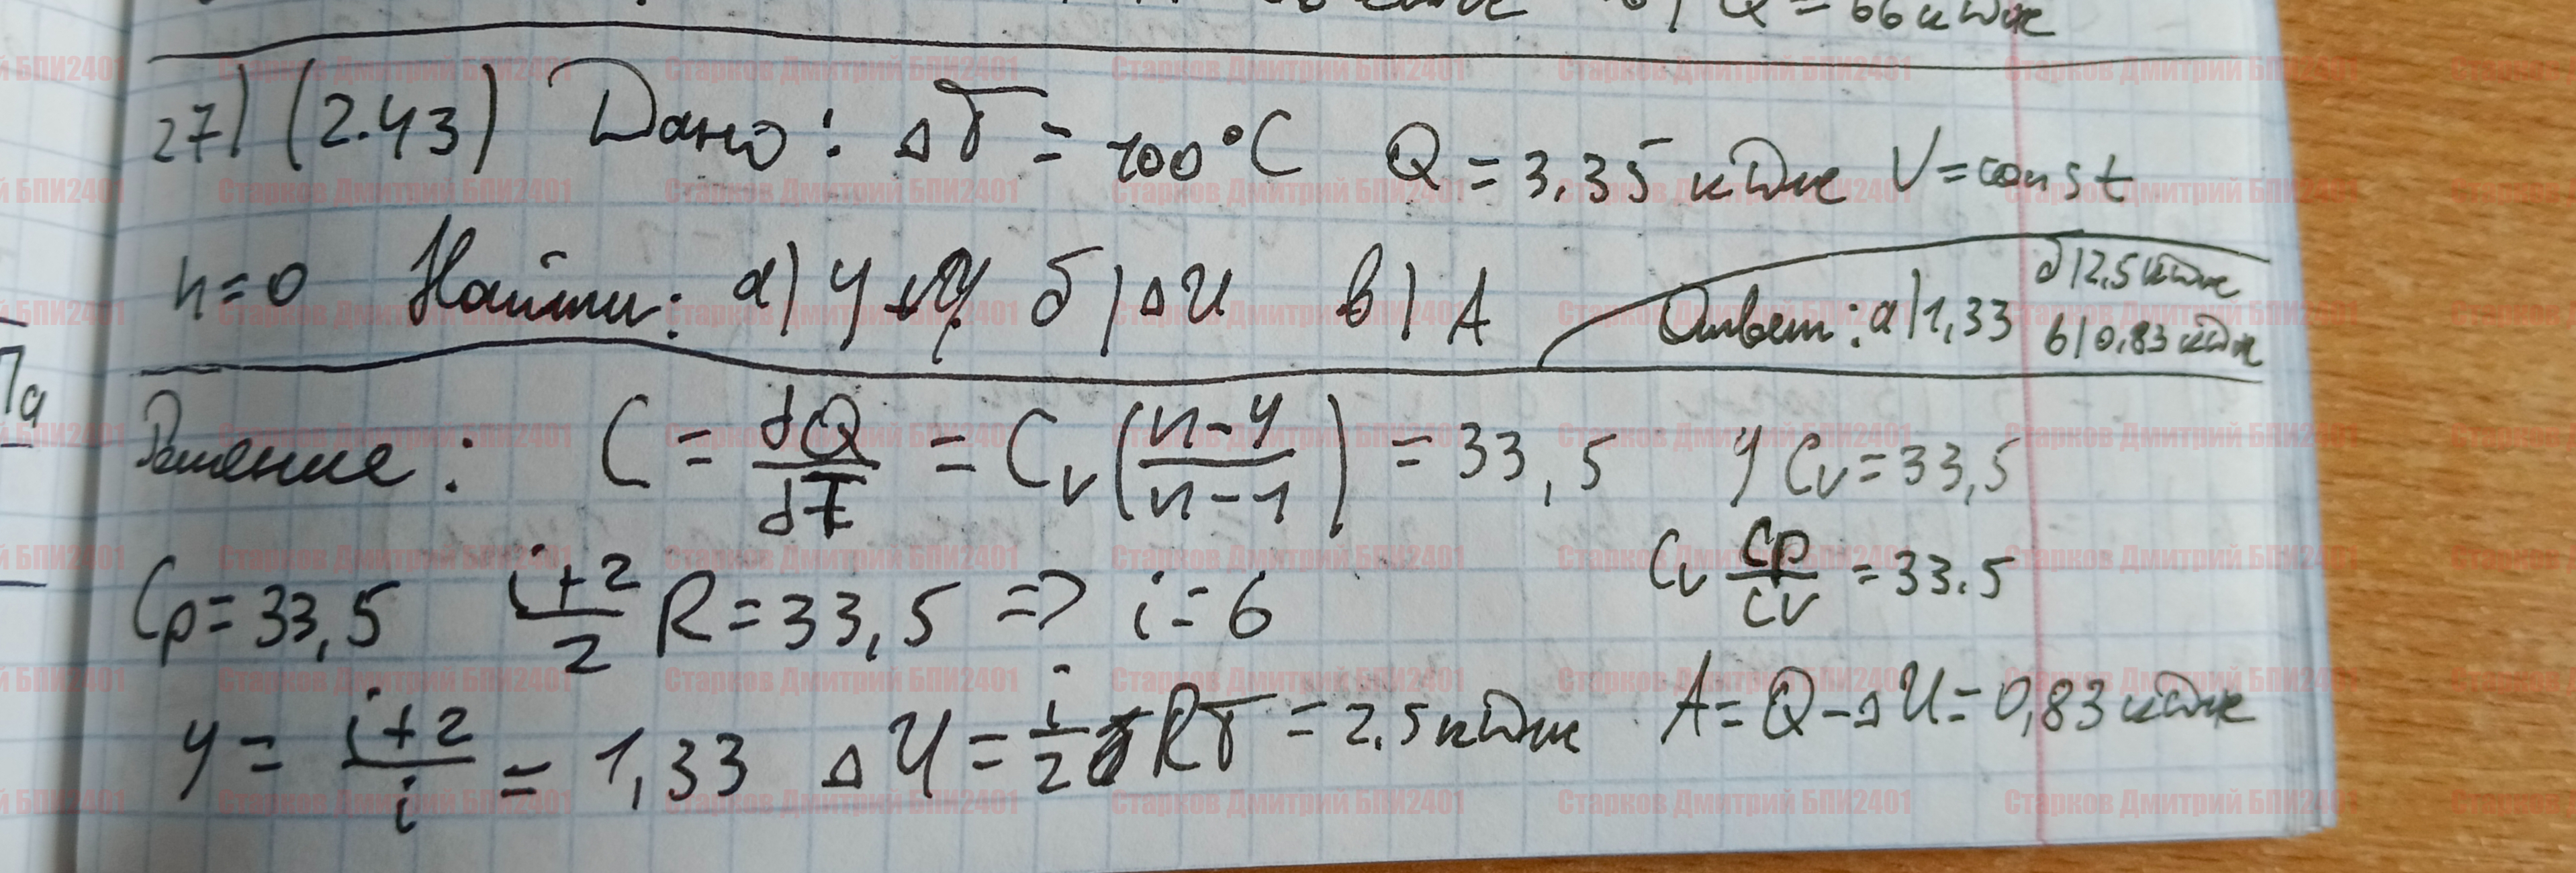 Q = 66 кДж
27) (2.43) Дано: ΔT = 100°C Q = 3,35 кДж V = const
n=0 Найти: а) γ б) ΔU в) A Ответ: а) 1,33 б) 2,5 кДж в) 0,83 кДж
Решение: C = dQ/dT = Cv (n-γ/n-1) = 33,5 γ Cv = 33,5
Cv Cp/Cv = 33.5
Cp = 33,5 i+2/2 R = 33,5 => i = 6
γ = i+2/i = 1,33 ΔU = i/2 RT = 2,5 кДж A = Q - ΔU = 0,83 кДж
Па
Старков Дмитрий БПИ2401